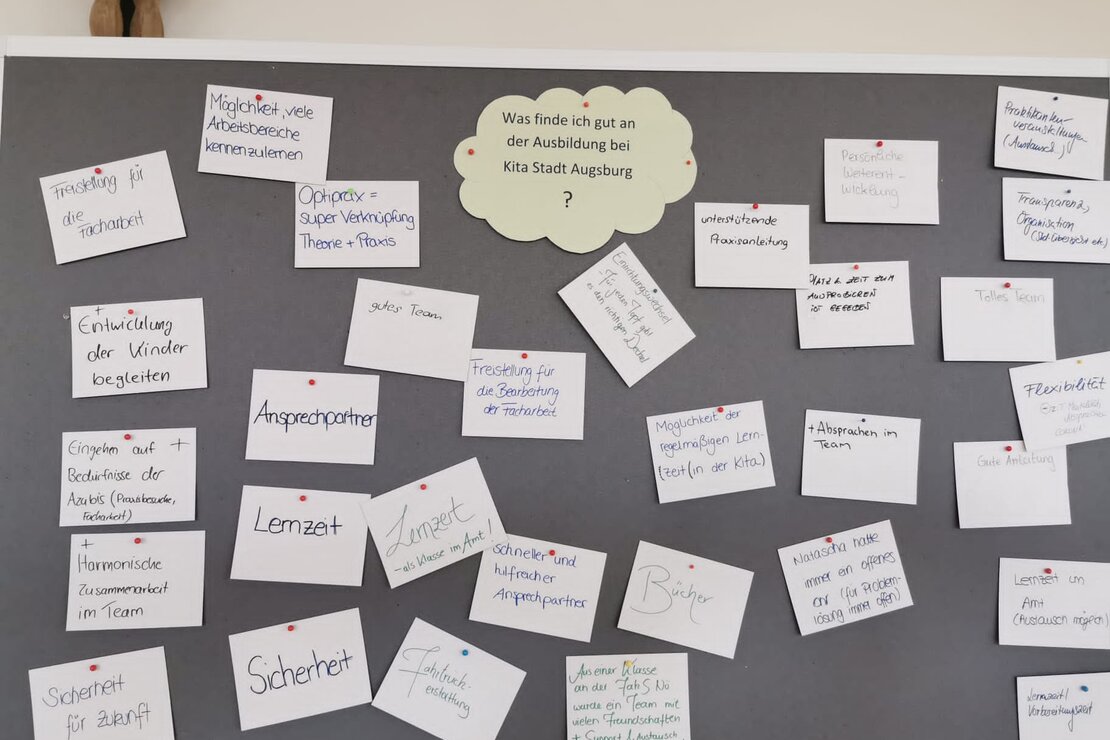 Was finde ich gut an
der Ausbildung bei
Kita Stadt Augsburg
?
Möglichkeit, viele
Arbeitsbereiche
kennenzulernen
Freistellung für
die Facharbeit
Optiprax =
super Verknüpfung
Theorie + Praxis
+
Entwicklung
der Kinder
begleiten
gutes Team
Einrichtungswechsel
- Für jeden Topf gibt
es den richtigen Deckel
unterstützende
Praxisanleitung
Persönliche
Weiterent-
wicklung
Praktikanten-
veranstaltungen
(Austausch,)
Transparenz,
Organisation
PLATZ & ZEIT ZUM
AUSPROBIEREN
IST GEGEBEN
Tolles Team
Freistellung für
die Bearbeitung
der Facharbeit
Ansprechpartner
Möglichkeit der
regelmäßigen Lern-
zeit (in der Kita)
+ Absprachen im
Team
Flexibilität
Gute Anleitung
Eingehen auf +
Bedürfnisse der
Azubis (Praxisbesuche,
Facharbeit)
Lernzeit
Lernzeit
- als Klasse im Amt!
schneller und
hilfreicher
Ansprechpartner
Bücher
Natascha hatte
immer ein offenes
Ohr (für Problem-
lösung immer offen)
Lernzeit im
Amt
(Austausch möglich)
+
Harmonische
Zusammenarbeit
im Team
Sicherheit
für Zukunft
Sicherheit
Fahrtruck-
erstattung
Aus einer Klasse
an der
wurde ein Team mit
vielen Freundschaften
+ Support & Austausch
Lernzeit/
Vorbereitungszeit